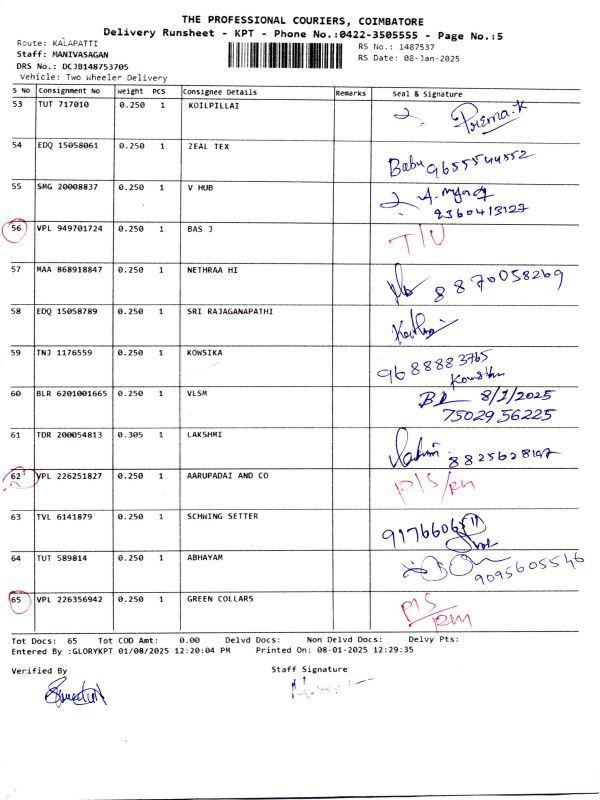 THE PROFESSIONAL COURIERS, COIMBATORE
Delivery Runsheet - KPT - Phone No.:0422-3505555 - Page No.:5
Route: KALAPATTI
Staff: MANIVASAGAN
DRS No.: DCJB148753705
Vehicle: Two Wheeler Delivery
RS No.: 1487537
RS Date: 08-Jan-2025
S No Consignment No Weight PCS Consignee Details Remarks Seal & Signature
53 TUT 717010 0.250 1 KOILPILLAI Prema.K
54 EDQ 15058061 0.250 1 ZEAL TEX Babu 9655544552
55 SMG 20008837 0.250 1 V HUB
9360413127
56 VPL 949701724 0.250 1 BAS J
57 MAA 868918847 0.250 1 NETHRAA HI 8870058269
58 EDQ 15058789 0.250 1 SRI RAJAGANAPATHI
59 TNJ 1176559 0.250 1 KOWSIKA 9688883765
60 BLR 6201001665 0.250 1 VLSM 8/1/2025
7502956225
61 TDR 200054813 0.305 1 LAKSHMI
62 VPL 226251827 0.250 1 AARUPADAI AND CO
63 TVL 6141879 0.250 1 SCHWING SETTER
64 TUT 589814 0.250 1 ABHAYAM 9095605546
65 VPL 226356942 0.250 1 GREEN COLLARS
Tot Docs: 65 Tot COD Amt: 0.00 Delvd Docs: Non Delvd Docs: Delvy Pts:
Entered By :GLORYKPT 01/08/2025 12:20:04 PM Printed On: 08-01-2025 12:29:35
Verified By
Staff Signature